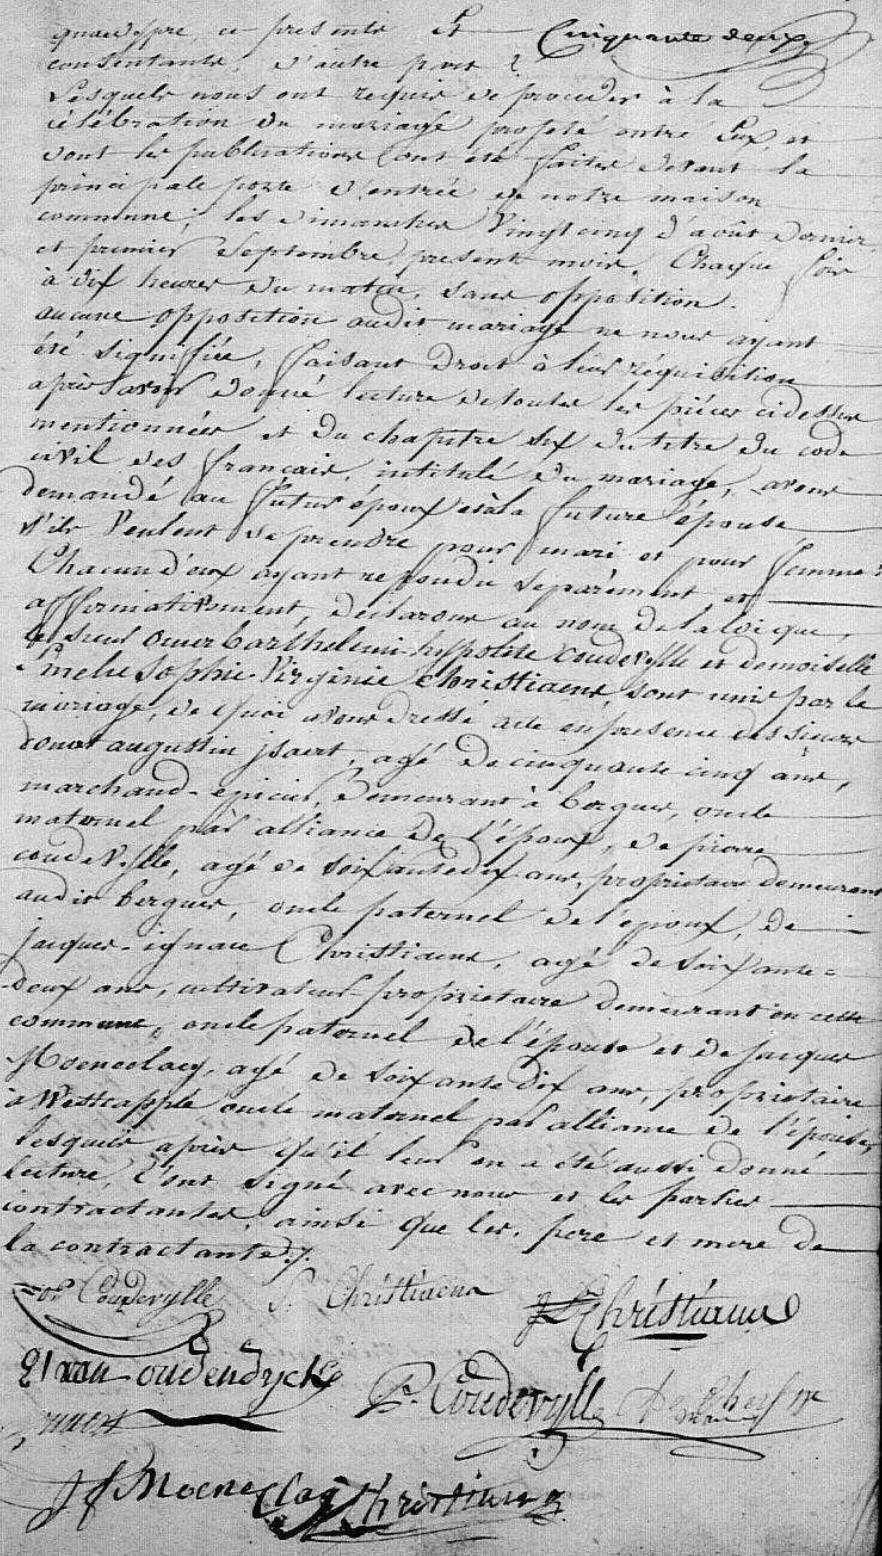 ce presents Et Cinquante deux
consentante, d'autre part ?
Lesquels nous ont requis de proceder à la
célébration du mariage projeté entre Eux, et
dont les publications ont été faites devant la
principale porte d'entrée de notre maison
commune; les dimanches Vingt cinq d'août dernier
et premier Septembre present mois, Chaque fois
à dix heures du matin, sans opposition.
aucune opposition audit mariage ne nous ayant
été signifiée, faisant Droit à leur réquisition
après avoir donné lecture de toutes les piéces cidessus
mentionnées et du chapitre six du titre du code
civil des français, intitulé du mariage, avons
demandé au futur époux età la future épouse
s'ils Veulent se prendre pour mari et pour femme:
Chacun d'eux ayant repondu separément et
affirmativement, declarons au nom de la loi que,
le sieur omer barthelemi hyppolite coudevylle et demoiselle
Sophie Virginie christiaens, sont unis par le
mariage, de quoi avons dressé acte en presence des sieurs
donat augustin jsaert, agé de cinquante cinq ans,
marchand-epicier, demeurant à bergues, oncle
maternel par alliance de l'époux, de pierre
coudevylle, agé de soixante dix ans, proprietaire demeurant
audit bergues, oncle paternel de l'epoux, de
jacques-ignace Christiaens, agé de soixante=
deux ans, cultivateur-proprietaire demeurant en cette
commune, oncle paternel de l'épouse et de jacques
Moeneclaey, agé de soixante dix ans, proprietaire
à Westcapple oncle maternel par alliance de l'épouse,
lesquels après qu'il leur en a été aussi donné
lecture, l'ont signé avec nous et les parties
contractantes, ainsi que les, pere et mere de
la contractante./.
Coudevylle S. Christiaens
Christiaens
van oudendycke
P. Coudevylle
J f Moeneclaey Christiaens